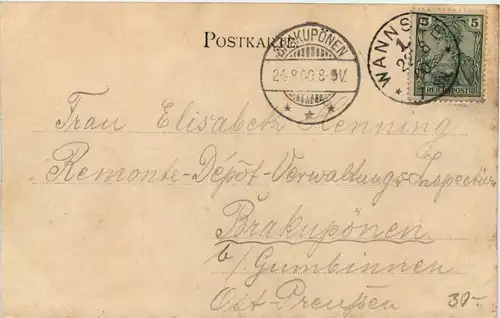 POSTKARTE
BRAKUPÖNEN
24.8.00.8-9V.
WANNS
5 5
REICHSPOST
Frau Elisabeth Henning
Remonte-Depôt-Verwaltungs-Inspector
Brakupönen
b/Gumbinnen
Ost-Preußen
30-